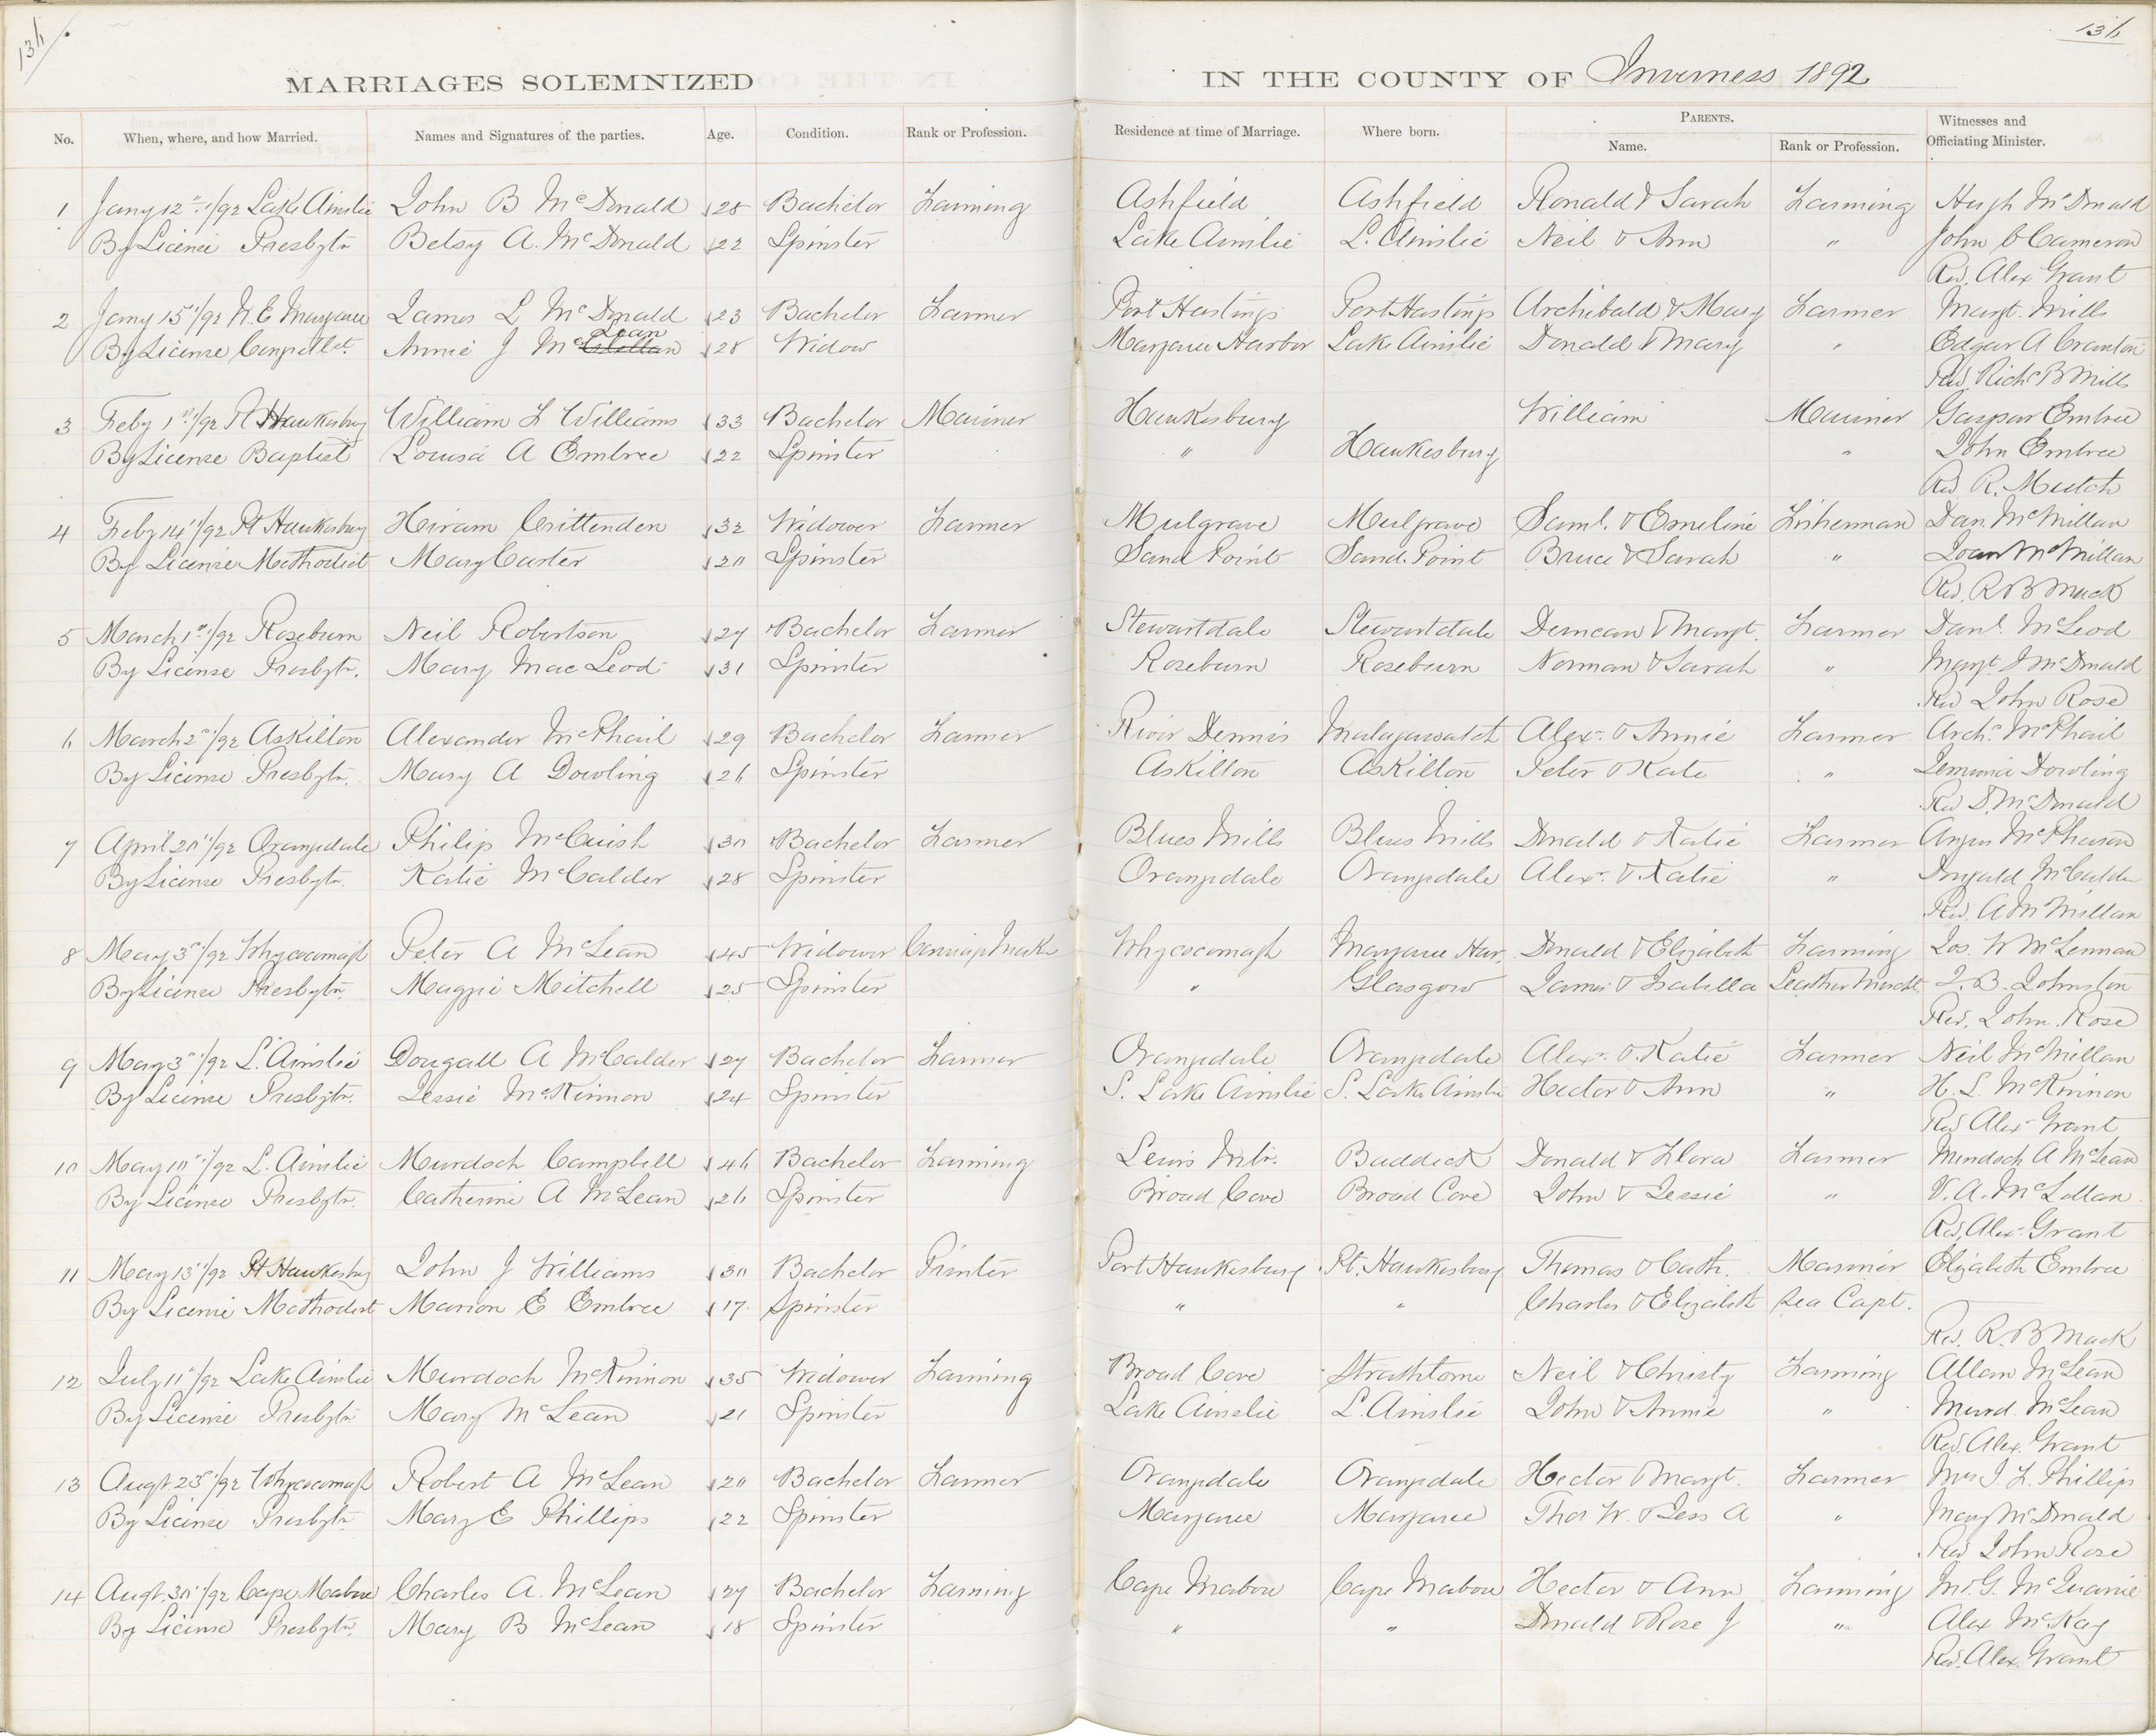 136
136
MARRIAGES SOLEMNIZED IN THE COUNTY OF Inverness 1892
No. When, where, and how Married. Names and Signatures of the parties. Age. Condition. Rank or Profession. Residence at time of Marriage. Where born. PARENTS. Name. Rank or Profession. Witnesses and Officiating Minister.
1 Jany 12"/92 Lake Ainslie John B McDonald 28 Bachelor Farming Ashfield Ashfield Ronald & Sarah Farming Hugh McDonald
By License Presbytn Betsy A. McDonald 22 Spinster Lake Ainslie L. Ainslie Neil & Ann " John C Cameron
Rev. Alex Grant
2 Jany 15"/92 N.E. Margaree James L McDonald 23 Bachelor Farmer Port Hastings Port Hastings Archibald & Mary Farmer Margt. Mills
By License Congrellt. Annie J McLellan Lean 28 Widow Margaree Harbor Lake Ainslie Donald & Mary " Edgar A Cranton
Rev. Richd B Mills
3 Feby 1st/92 Pt Hawkesbury William L Williams 33 Bachelor Mariner Hawkesbury William Mariner Gaspar Embree
By License Baptist Louisa A Embree 22 Spinster " Hawkesbury " John Embree
Rev R. Mutch
4 Feby 14"/92 Pt Hawkesbury Hiram Crittenden 32 Widower Farmer Mulgrave Mulgrave Saml. & Emeline Fisherman Dan. McMillan
By License Methodist Mary Carter 20 Spinster Sand Point Sand Point Bruce & Sarah " Joan McMillan
Rev. R B Mack
5 March 1st/92 Roseburn Neil Robertson 27 Bachelor Farmer Stewartdale Stewartdale Duncan & Margt. Farmer Danl. McLeod
By License Presbytn. Mary MacLeod 31 Spinster Roseburn Roseburn Norman & Sarah " Margt J McDonald
Rev John Rose
6 March 2"/92 Askilton Alexander McPhail 29 Bachelor Farmer River Dennis Malagawatch Alexr. & Annie Farmer Archd. McPhail
By License Presbytn. Mary A Dowling 26 Spinster Askilton Askilton Peter & Kate " Jemima Dowling
Rev D. McDonald
7 April 20"/92 Orangedale Philip McCuish 30 Bachelor Farmer Blues Mills Blues Mills Donald & Katie Farmer Angus McPherson
By License Presbytn. Katie McCalder 28 Spinster Orangedale Orangedale Alexr. & Katie " Dugald McCalder
Rev. A McMillan
8 May 3"/92 Whycocomagh Peter A McLean 45 Widower Carriage Maker Whycocomagh Margaree Har. Donald & Elizabeth Farming Jos. W McLennan
By License Presbytn. Maggie Mitchell 25 Spinster " Glasgow James & Isabella Leather Mercht. J. B. Johnston
Rev. John Rose
9 May 3"/92 L. Ainslie Dougall A McCalder 27 Bachelor Farmer Orangedale Orangedale Alexr. & Katie Farmer Neil McMillan
By License Presbytn. Jessie McKinnon 24 Spinster S. Lake Ainslie S. Lake Ainslie Hector & Ann " H. L. McKinnon
Rev Alex Grant
10 May 10"/92 L. Ainslie Murdoch Campbell 46 Bachelor Farming Lewis Mtn. Baddeck Donald & Flora Farmer Murdoch A McLean
By License Presbytn. Catherine A McLean 26 Spinster Broad Cove Broad Cove John & Jessie " V. A. McLellan
Rev. Alex Grant
11 May 13"/92 Pt Hawkesbury John J Williams 30 Bachelor Printer Port Hawkesbury Pt. Hawkesbury Thomas & Cath. Mariner Elizabeth Embree
By License Methodist Marion E Embree 17 Spinster " " Charles & Elizabeth Sea Capt.
Rev. R B Mack
12 July 11"/92 Lake Ainslie Murdoch McKinnon 35 Widower Farming Broad Cove Strathlorne Neil & Christy Farming Allan McLean
By License Presbytn Mary McLean 21 Spinster Lake Ainslie L. Ainslie John & Annie " Murd. McLean
Rev. Alex. Grant
13 Augt 23"/92 Whycocomagh Robert A McLean 20 Bachelor Farmer Orangedale Orangedale Hector & Margt. Farmer Mrs J. L. Phillips
By License Presbytn. Mary E Phillips 22 Spinster Margaree Margaree Thos W. & Jess A " Mary McDonald
Rev John Rose
14 Augt. 30"/92 Cape Mabou Charles A. McLean 27 Bachelor Farming Cape Mabou Cape Mabou Hector & Ann Farming M. G. McQuarrie
By License Presbytn. Mary B McLean 18 Spinster " " Donald & Rose J " Alex McKay
Rev. Alex. Grant